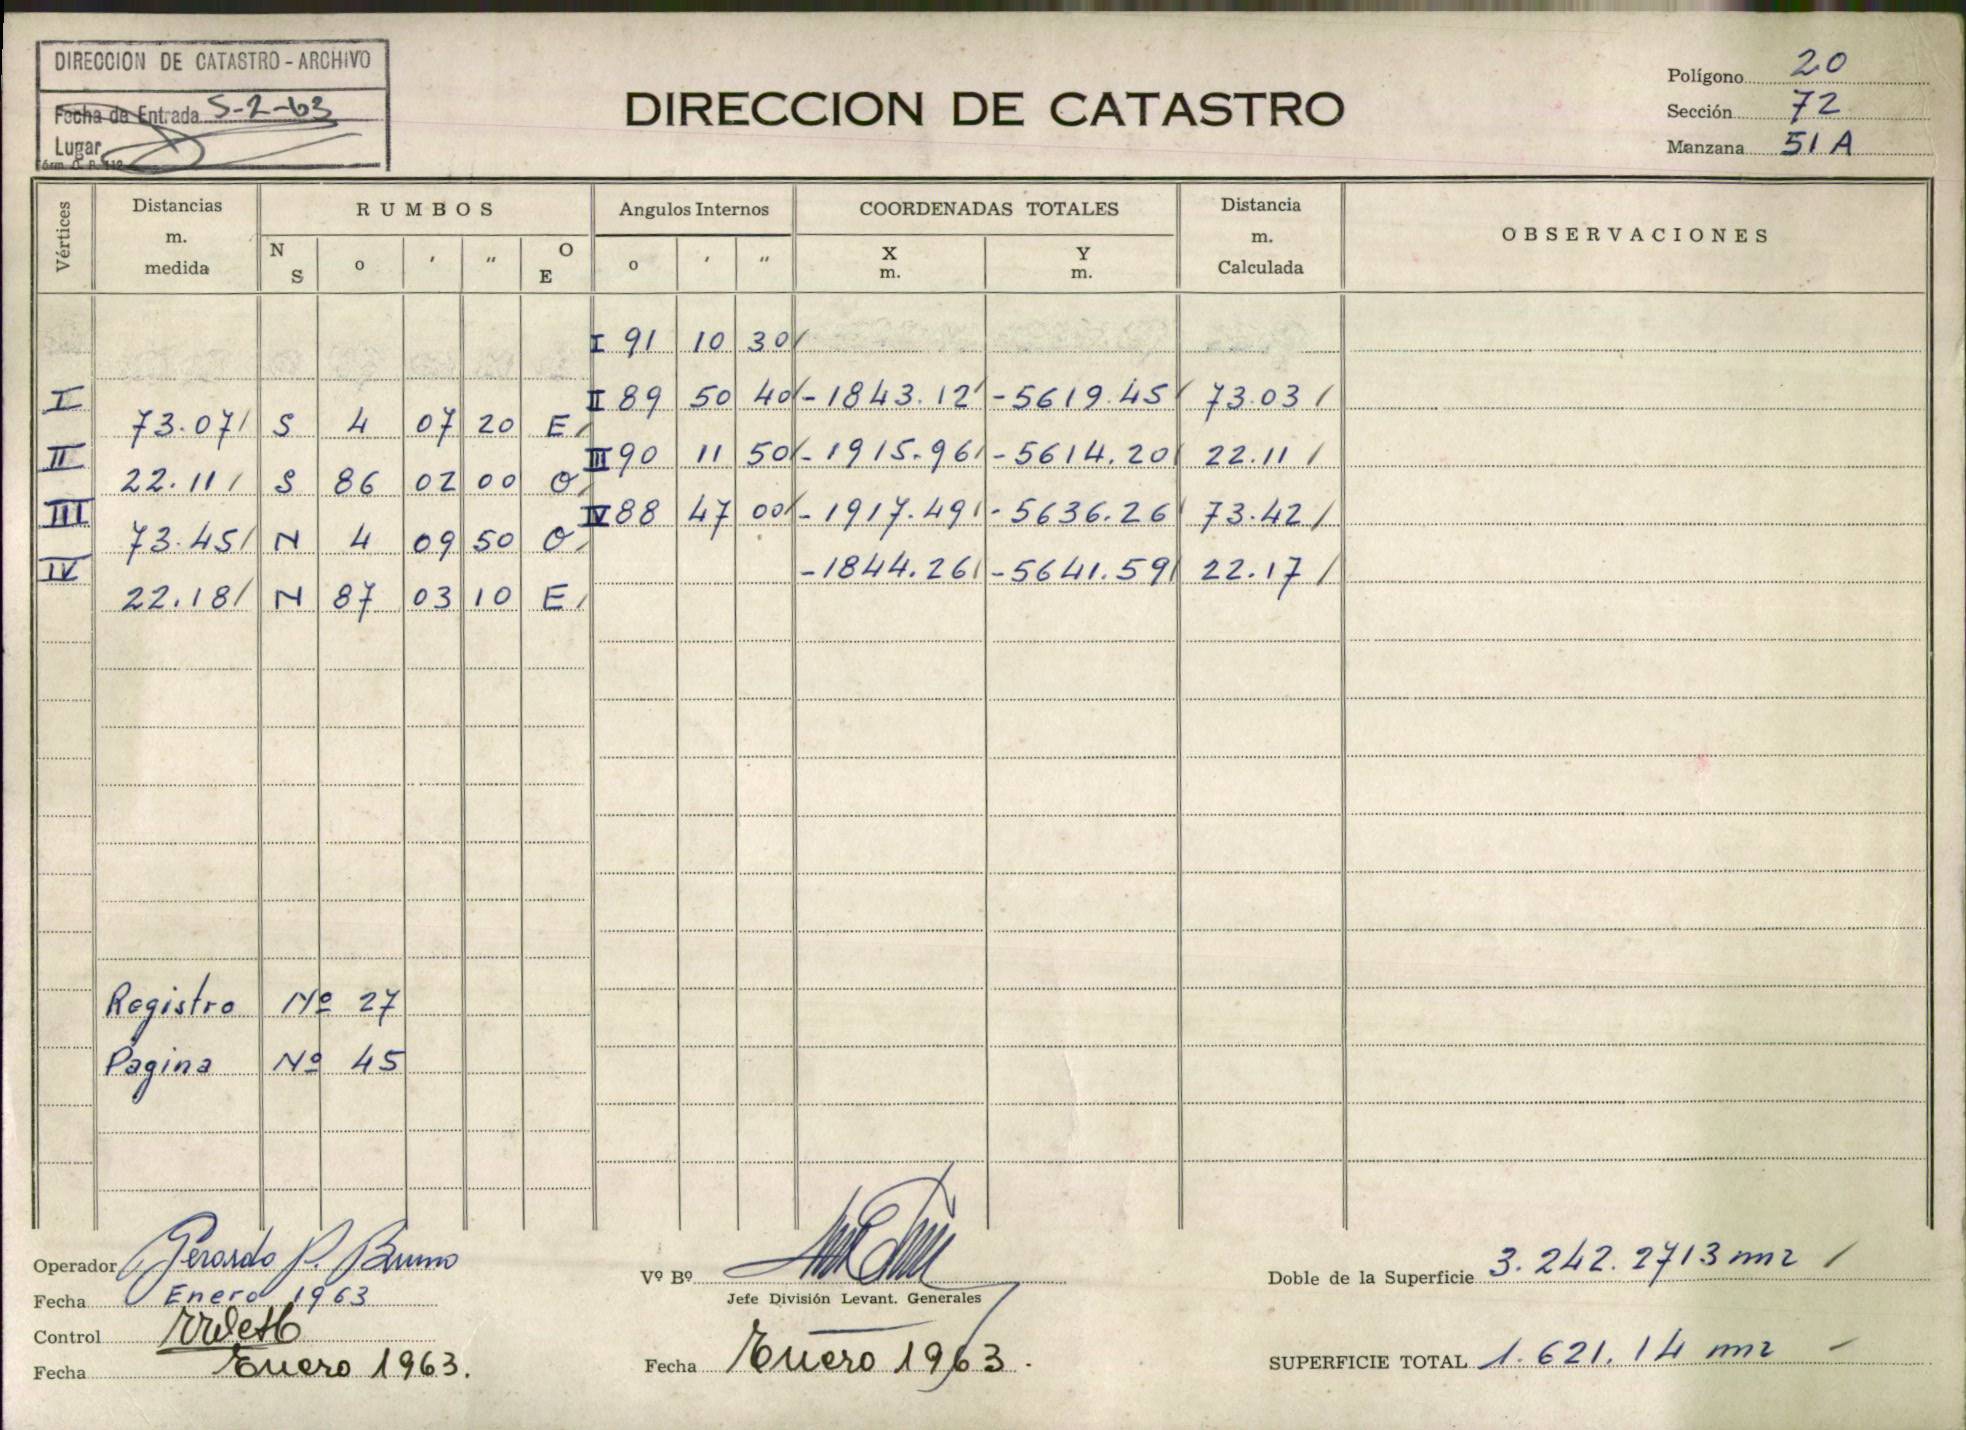 DIRECCION DE CATASTRO - ARCHIVO
Fecha de Entrada 5-2-63
Lugar
DIRECCION DE CATASTRO
Polígono 20
Sección 72
Manzana 51 A
Vértices
Distancias m. medida
RUMBOS
N S o ' " O E
Angulos Internos
o ' "
COORDENADAS TOTALES
X m. Y m.
Distancia m. Calculada
OBSERVACIONES
I 91 10 30/
I
II 89 50 40/ -1843.12/ -5619.45/ 73.03/
73.07/ S 4 07 20 E/
II
III 90 11 50/ -1915.96/ -5614.20/ 22.11/
22.11/ S 86 02 00 O/
III
IV 88 47 00/ -1917.49/ -5636.26/ 73.42/
73.45/ N 4 09 50 O/
IV
-1844.26/ -5641.59/ 22.17/
22.18/ N 87 03 10 E/
Registro Nº 27
Pagina Nº 45
Operador Gerardo P. Bruno
Fecha Enero 1963
Control
Fecha Enero 1963.
Vº Bº
Jefe División Levant. Generales
Fecha Enero 1963.
Doble de la Superficie 3.242.2713 m2 /
SUPERFICIE TOTAL 1.621.14 m2